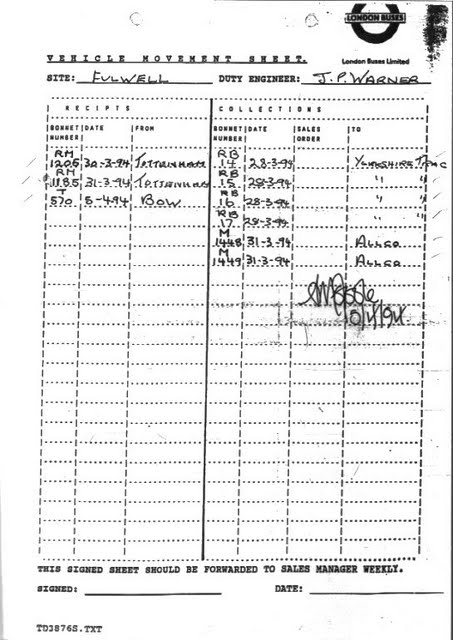 LONDON BUSES
VEHICLE MOVEMENT SHEET.
London Buses Limited
SITE: FULWELL DUTY ENGINEER: J.P. WARNER
RECEIPTS COLLECTIONS
BONNET NUMBER DATE FROM BONNET NUMBER DATE SALES ORDER TO
RM 1205 30-3-94 TOTTENHAM RB 14 28-3-94 YORKSHIRE
RM 1185 31-3-94 TOTTENHAM RB 15 28-3-94 " "
T 570 5-4-94 BOW RB 16 28-3-94 " "
RB 17 28-3-94 " "
M 1448 31-3-94 ALLCO
M 1449 31-3-94 ALLCO
THIS SIGNED SHEET SHOULD BE FORWARDED TO SALES MANAGER WEEKLY.
SIGNED: DATE:
TD3876S.TXT